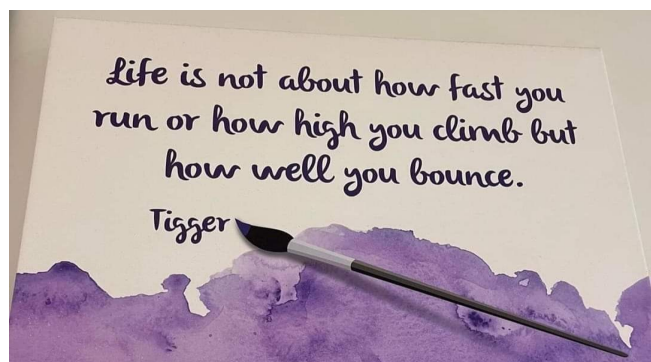 Life is not about how fast you
run or how high you climb but
how well you bounce.
Tigger